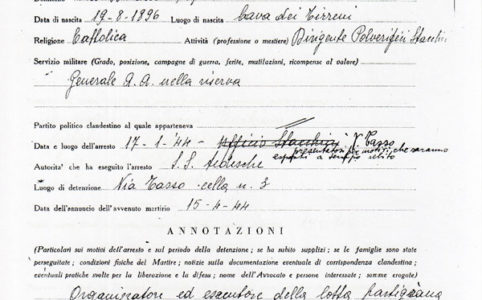 Data di nascita 19-8-1896 Luogo di nascita Cava dei Tirreni
Religione Cattolica Attività (professione o mestiere) Dirigente Polverifici Stacchini
Servizio militare (Grado, posizione, campagne di guerra, ferite, mutilazioni, ricompense al valore)
Generale A.A. nella riserva
Partito politico clandestino al quale apparteneva
Data e luogo dell'arresto 17-1-44 - Ufficio Stacchini V. Tasso
presentatosi per motivi che saranno
esposti a seguito
Autorita' che ha eseguito l'arresto S.S. tedesche
Luogo di detenzione Via Tasso - cella n. 3
Data dell'annuncio dell'avvenuto martirio 15-4-44
ANNOTAZIONI
(Particolari sui motivi dell'arresto e sul periodo della detenzione; se ha subito supplizi; se le famiglie sono state
perseguitate; condizioni fisiche del Martire; notizie sulla documentazione eventuale di corrispondenza clandestina;
eventuali pratiche svolte per la liberazione e la difesa; nome dell'Avvocato e persone interessate; somme erogate)
Organizzatore ed esecutore della lotta partigiana